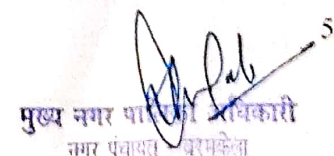 5
मुख्य नगर पालिका अधिकारी
नगर पंचायत बरमकेला